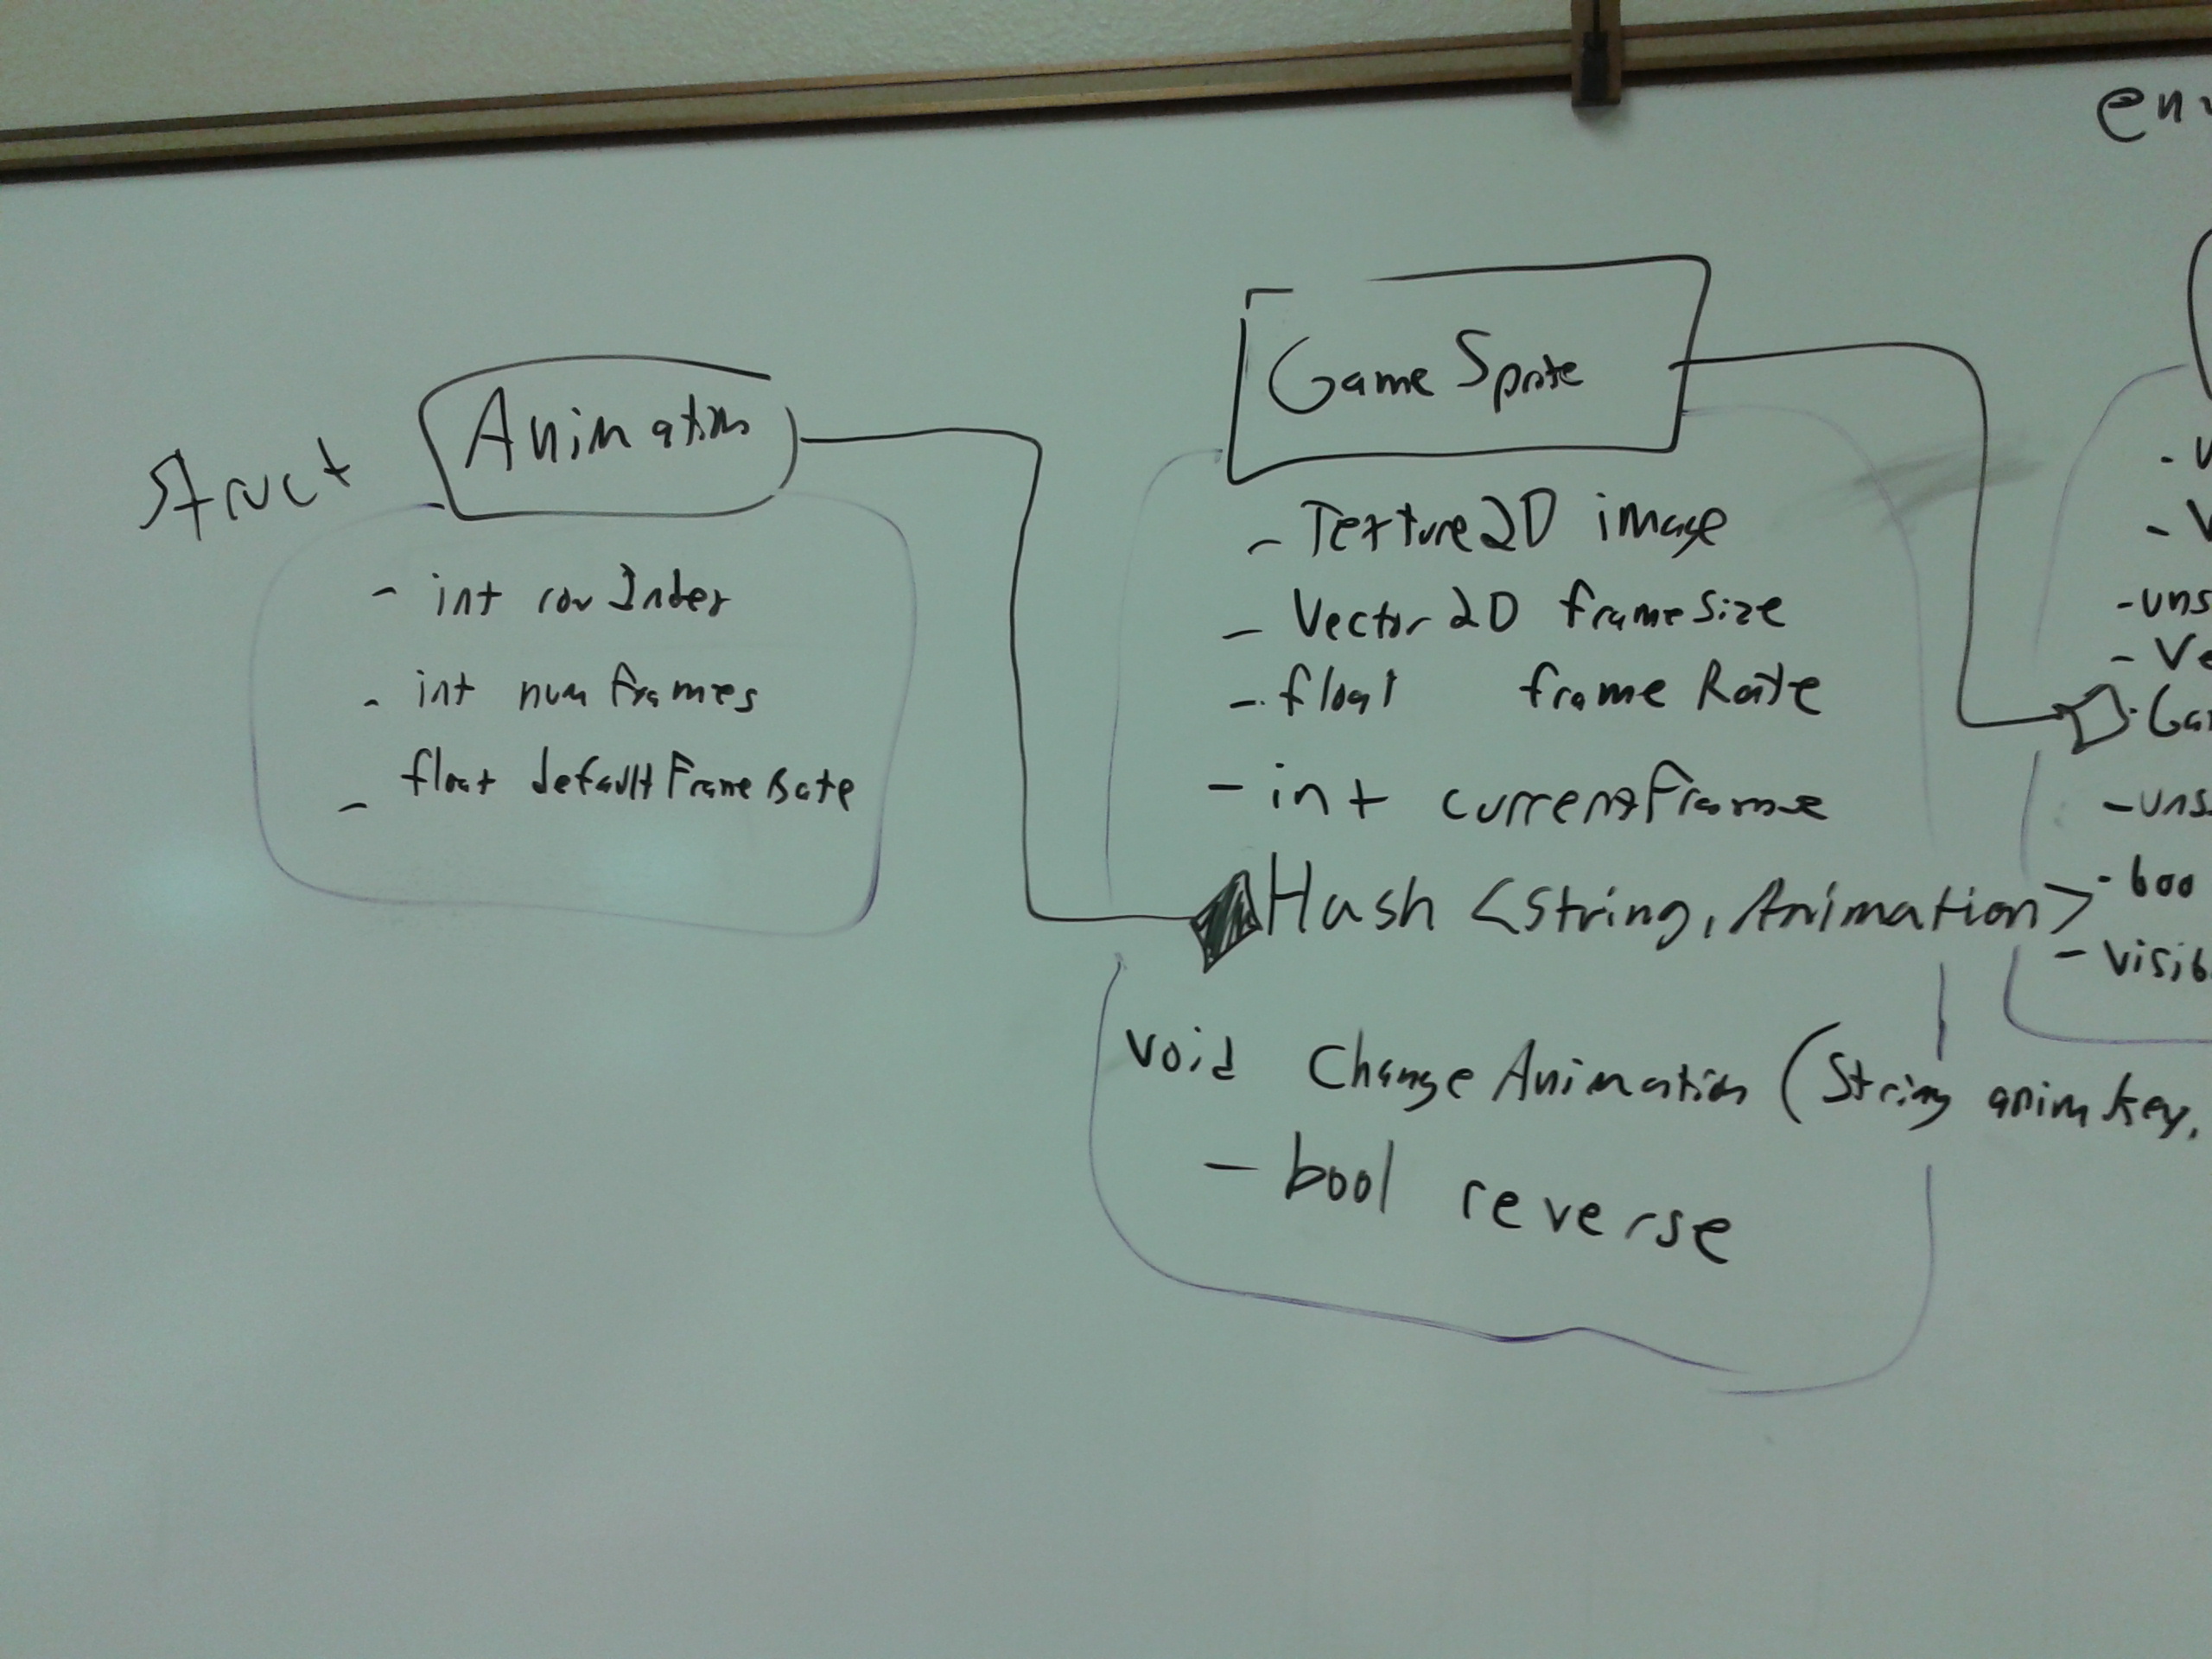 struct Animation
- int rowIndex
- int numFrames
- float defaultFrameRate
GameSprite
- Texture2D image
- Vector2D frameSize
- float frameRate
- int currentFrame
Hash <String, Animation>
void ChangeAnimation (String animKey,
- bool reverse
- uns
- Ve
- unsi
- boo
- visib